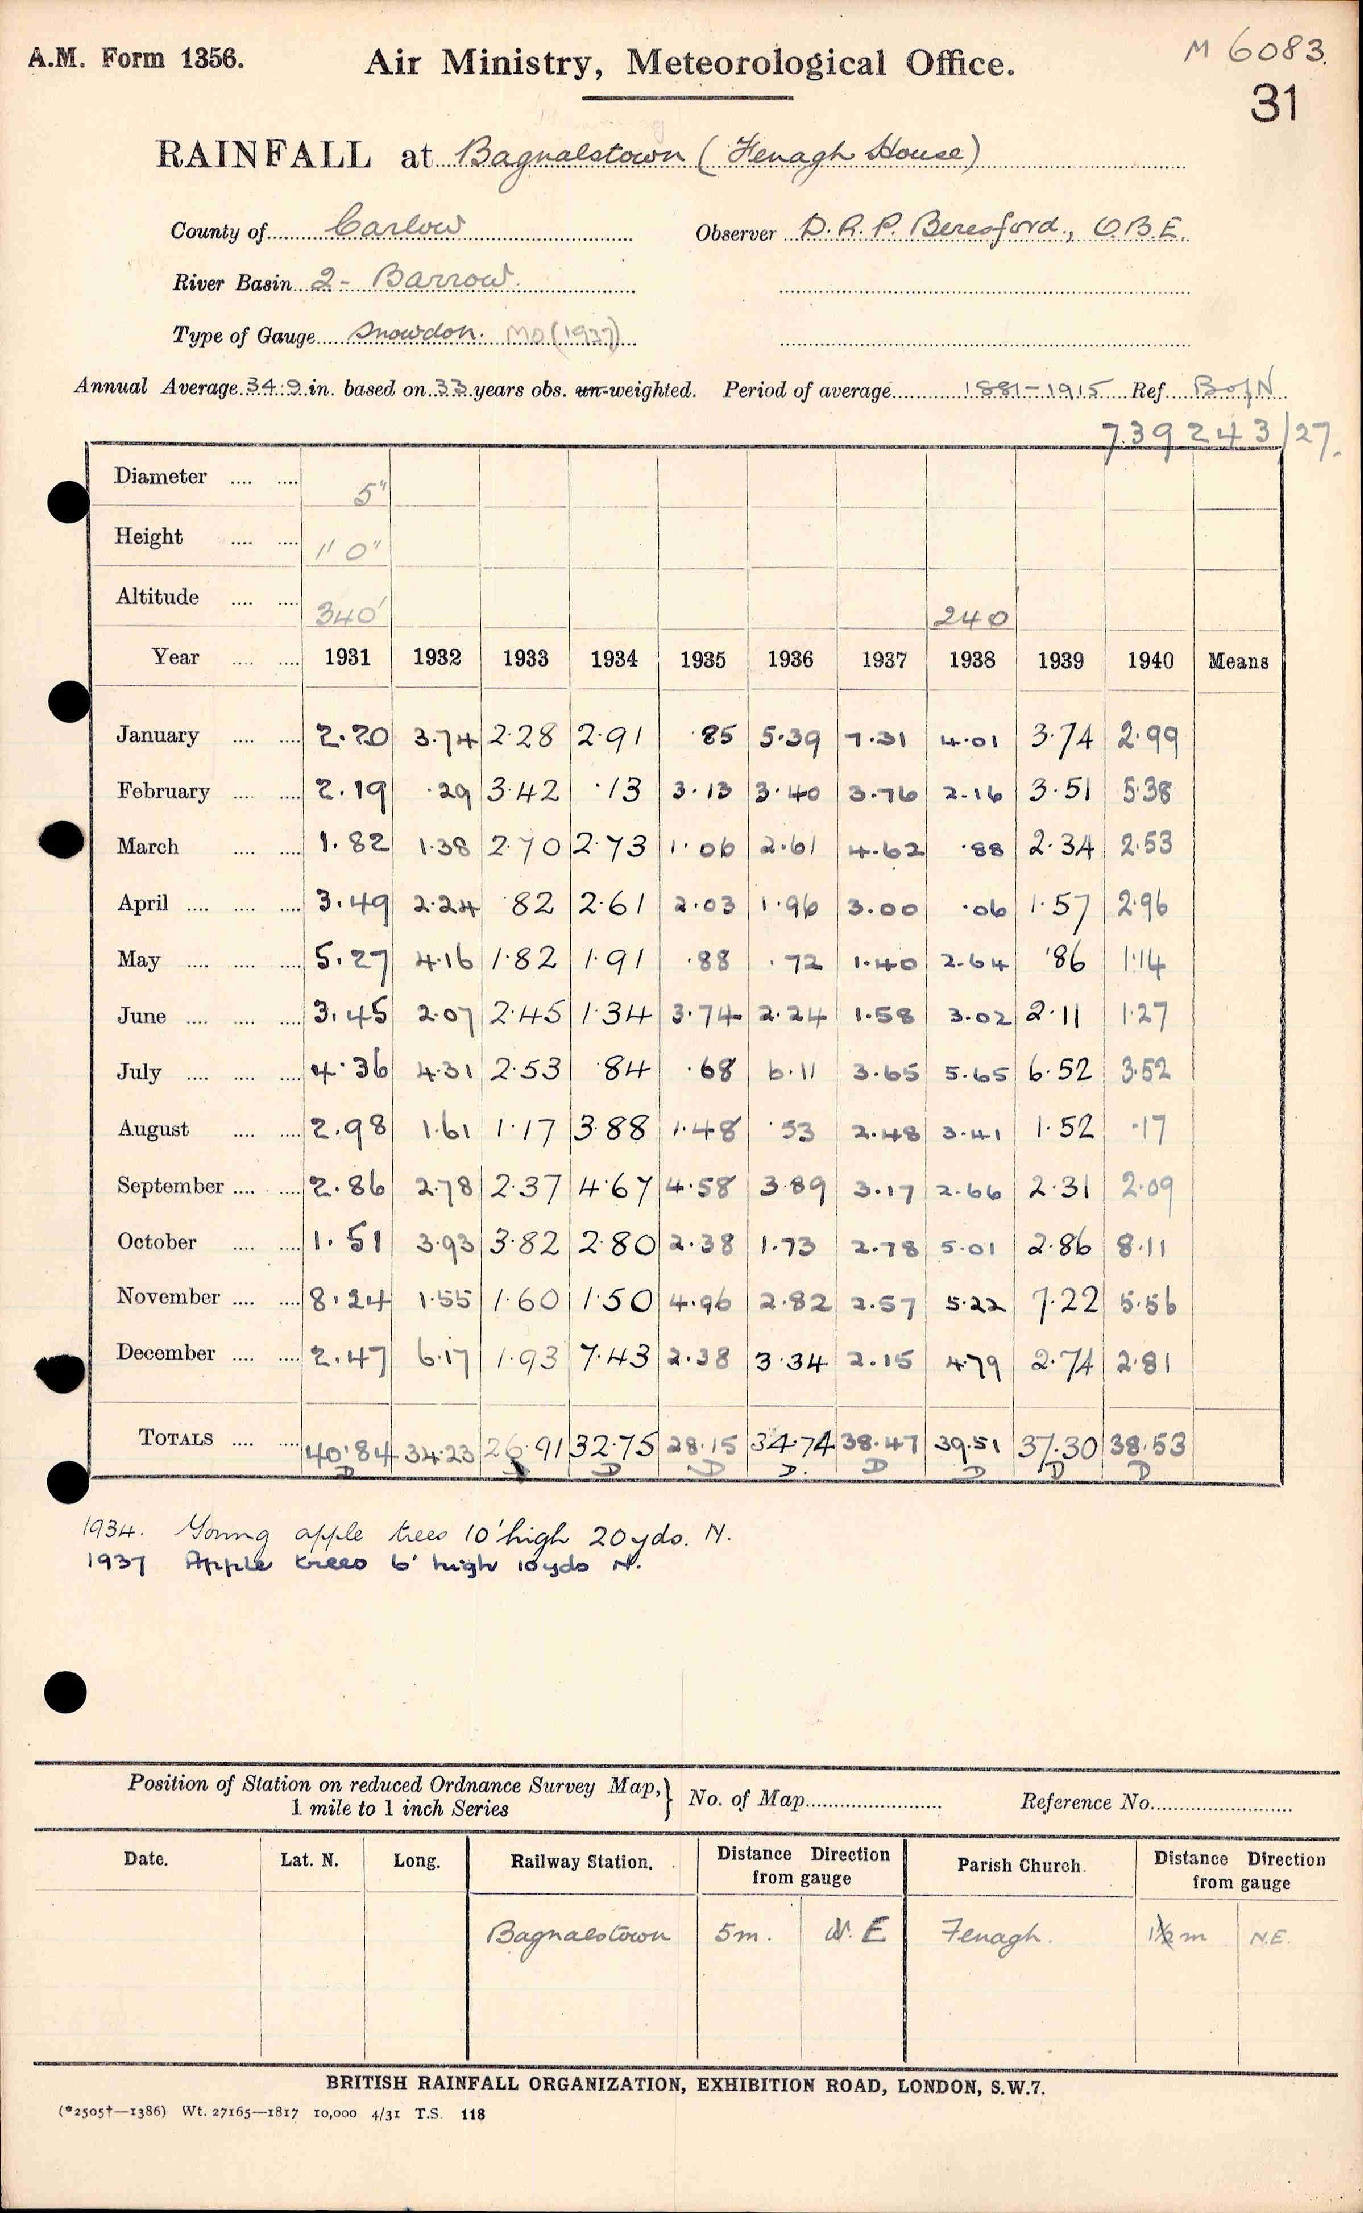 A.M. Form 1356.
Air Ministry, Meteorological Office.
M 6083.
31
RAINFALL at Bagnalstown (Fenagh House)
County of Carlow Observer D.R.P. Beresford, O.B.E.
River Basin 2 - Barrow.
Type of Gauge Snowdon. MO (1937)
Annual Average 34.9 in. based on 33 years obs. un-weighted. Period of average 1881-1915 Ref. B of N
739243/27.
Diameter .... .... 5"
Height .... .... 1' 0"
Altitude .... .... 340' 240
Year .... .... 1931 1932 1933 1934 1935 1936 1937 1938 1939 1940 Means
January .... .... 2.20 3.74 2.28 2.91 .85 5.39 7.31 4.01 3.74 2.99
February .... .... 2.19 .29 3.42 .13 3.13 3.40 3.76 2.16 3.51 5.38
March .... .... 1.82 1.38 2.70 2.73 1.06 2.61 4.62 .88 2.34 2.53
April .... .... .... 3.49 2.24 .82 2.61 2.03 1.96 3.00 .06 1.57 2.96
May .... .... .... 5.27 4.16 1.82 1.91 .88 .72 1.40 2.64 .86 1.14
June .... .... .... 3.45 2.07 2.45 1.34 3.74 2.24 1.58 3.02 2.11 1.27
July .... .... .... 4.36 4.31 2.53 .84 .68 6.11 3.65 5.65 6.52 3.52
August .... .... 2.98 1.61 1.17 3.88 1.48 .53 2.48 3.41 1.52 .17
September .... .... 2.86 2.78 2.37 4.67 4.58 3.89 3.17 2.66 2.31 2.09
October .... .... 1.51 3.93 3.82 2.80 2.38 1.73 2.78 5.01 2.86 8.11
November .... .... 8.24 1.55 1.60 1.50 4.96 2.82 2.57 5.22 7.22 5.56
December .... .... 2.47 6.17 1.93 7.43 2.38 3.34 2.15 4.79 2.74 2.81
TOTALS .... .... 40.84 34.23 26.91 32.75 28.15 34.74 38.47 39.51 37.30 38.53
D D D D D D D D
1934. Young apple trees 10' high 20 yds. N.
1937 Apple trees 6' high 10 yds N.
Position of Station on reduced Ordnance Survey Map, } No. of Map Reference No.
1 mile to 1 inch Series
Date. Lat. N. Long. Railway Station. Distance Direction from gauge Parish Church. Distance Direction from gauge
Bagnalstown 5m. N.E Fenagh. 1½ m N.E.
BRITISH RAINFALL ORGANIZATION, EXHIBITION ROAD, LONDON, S.W.7.
(*2505†—1386) Wt. 27165—1817 10,000 4/31 T.S. 118